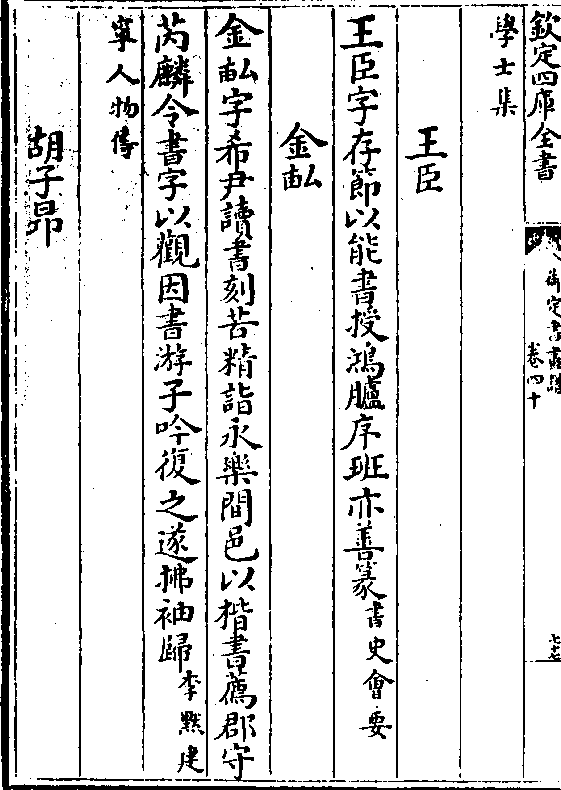 欽定四庫全書
御定書畫譜
卷四十
七七
學士集
王臣
王臣字存節以能書授鴻臚序班亦善篆書史會要
金畝
金畝字希尹讀書刻苦精詣永樂間邑以楷書薦郡守
芮麟令書字以觀因書游子吟復之遂拂袖歸李默建
寧人物傳
胡子昂